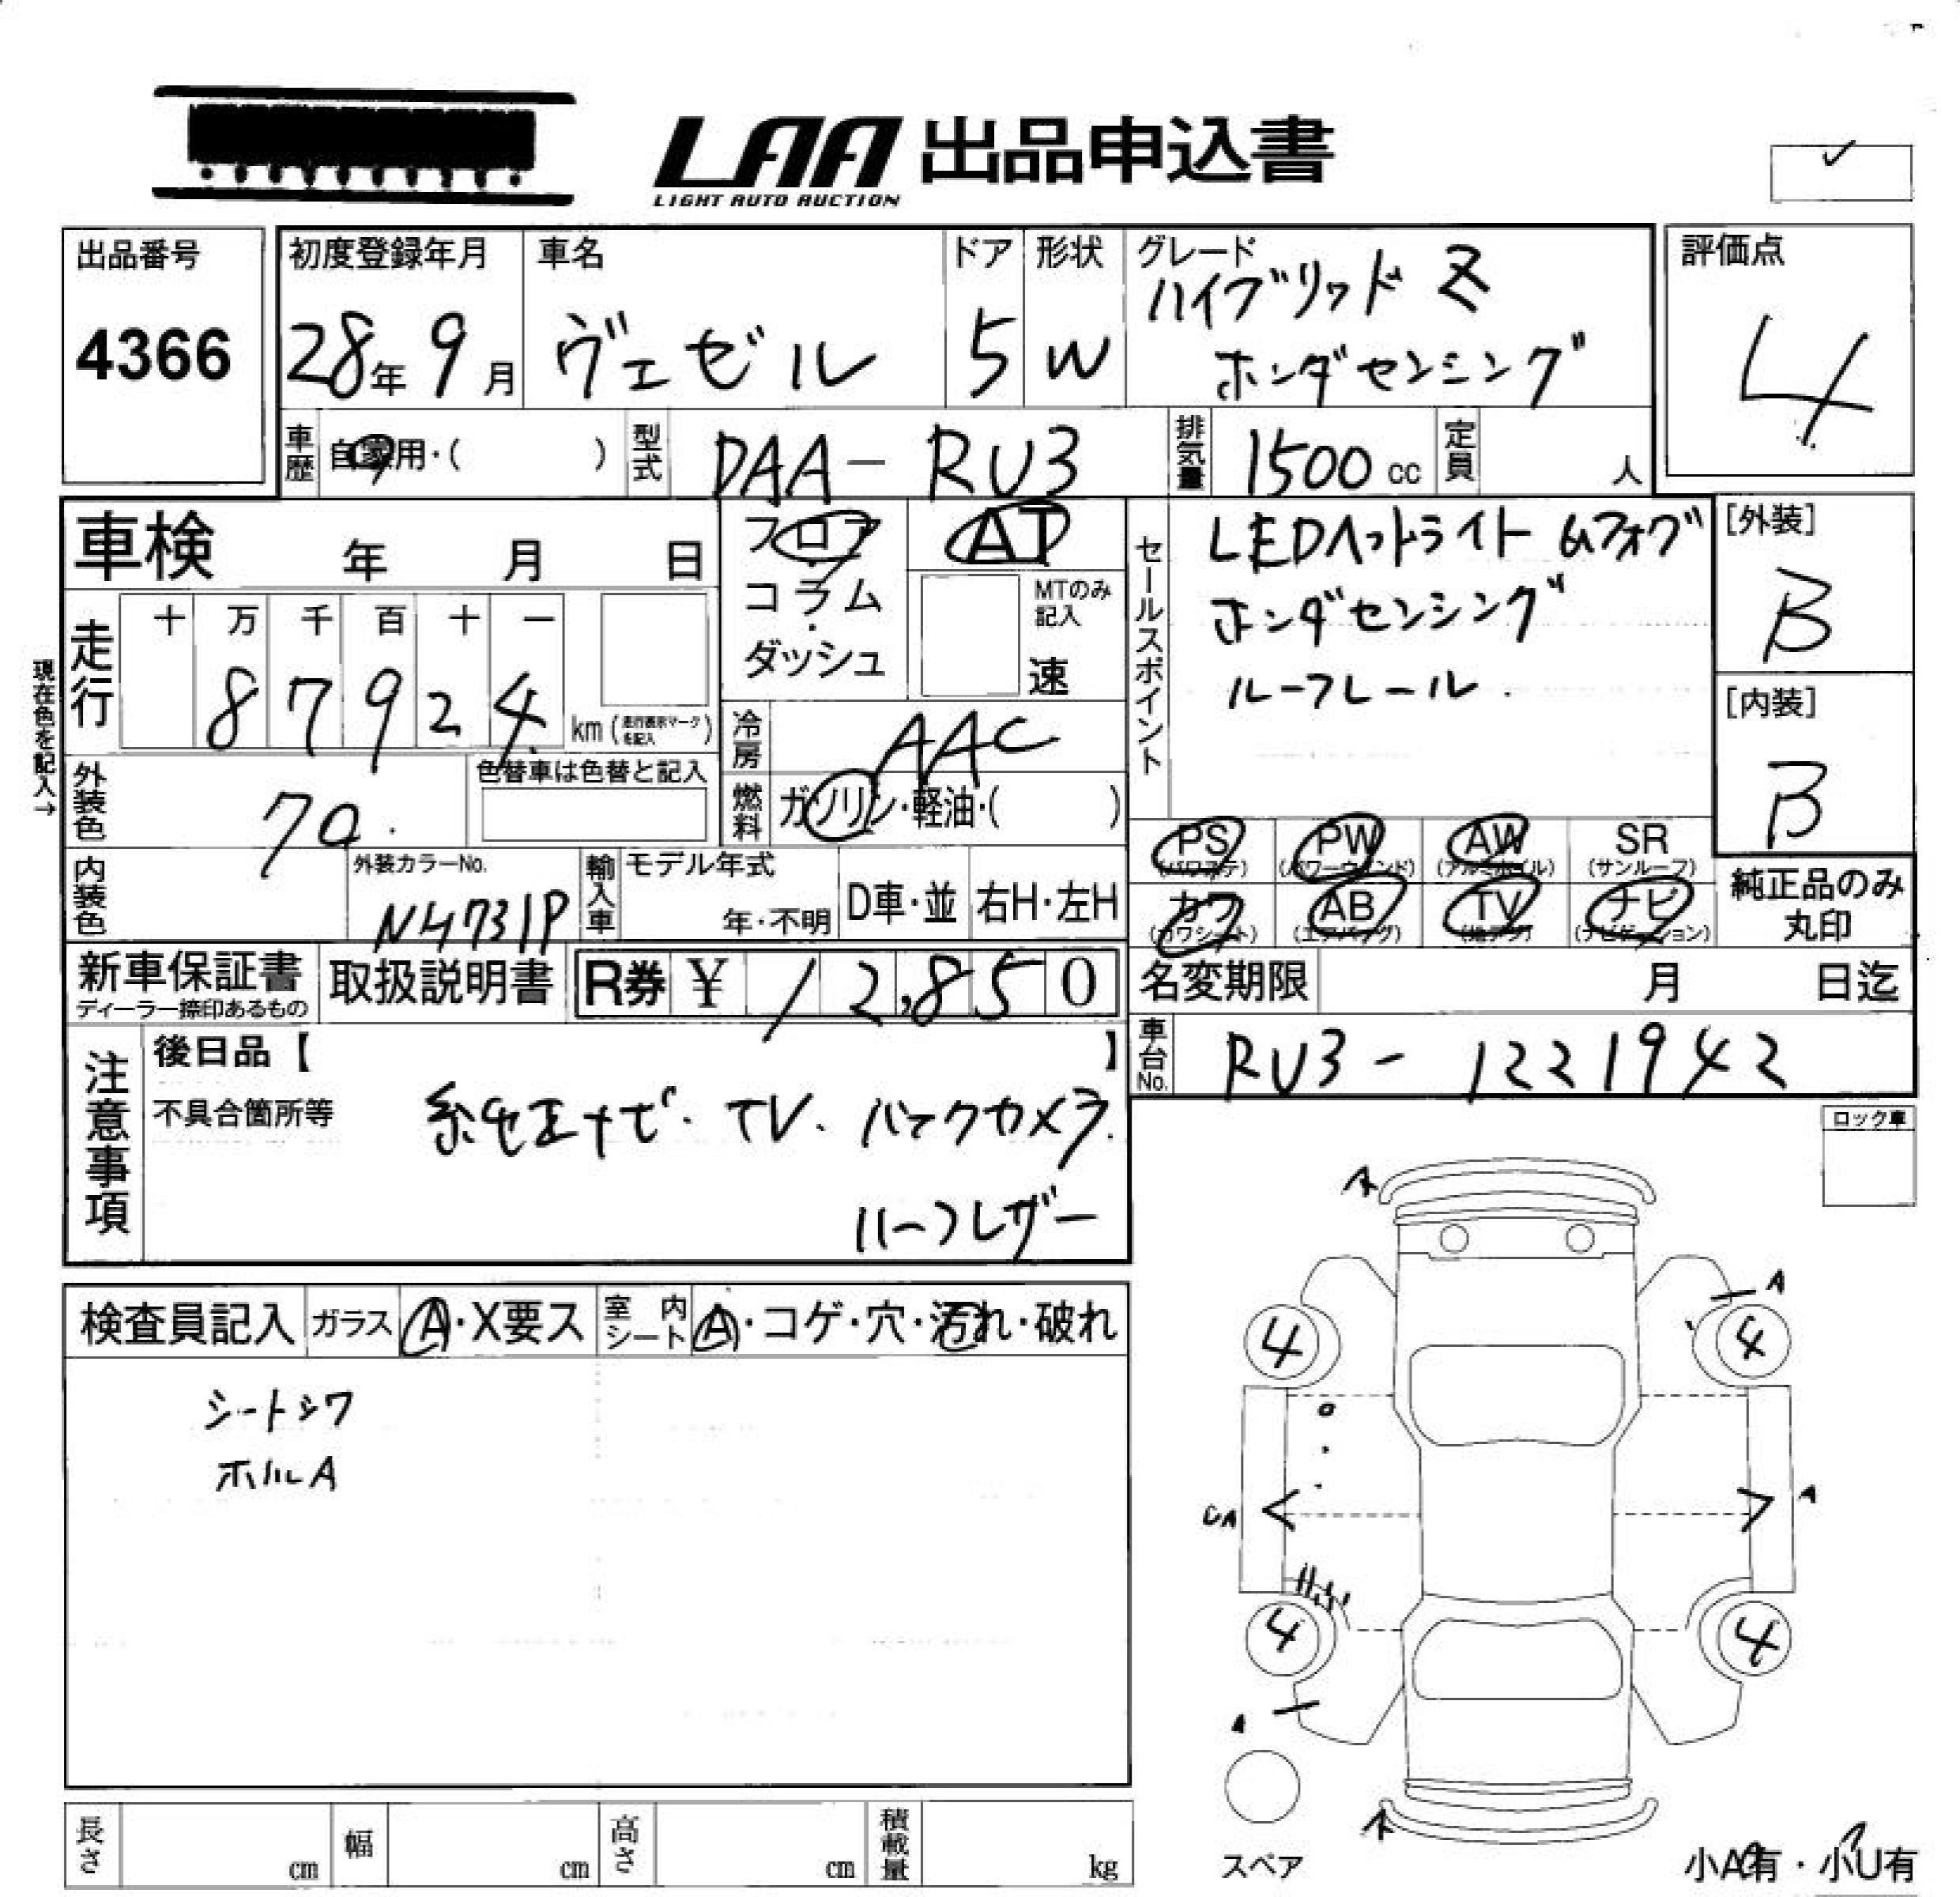 LAA 出品申込書
LIGHT AUTO AUCTION
出品番号
4366
初度登録年月
28年 9月
車名
ヴェゼル
ドア
5
形状
W
グレード
ハイブリッド Z
ホンダセンシング
評価点
4
車歴
自家用・( )
型式
DAA-RU3
排気量
1500 cc
定員
人
車検 年 月 日
フロア
コラム
ダッシュ
AT
MTのみ
記入
速
セールスポイント
LEDヘッドライト &フォグ
ホンダセンシング
ルーフレール
[外装]
B
[内装]
B
現在色を記入→
走行
十 万 千 百 十 一
8 7 9 2 4
km (走行表示マークを記入)
冷房
AAC
燃料
ガソリン・軽油・( )
外装色
色替車は色替と記入
内装色
外装カラーNo.
NH731P
輸入車
モデル年式
年・不明
D車・並
右H・左H
PS
(パワステ)
PW
(パワーウィンド)
AW
(アルミホイル)
SR
(サンルーフ)
カワ
(カワシート)
AB
(エアバッグ)
TV
(地デジ)
ナビ
(ナビゲーション)
純正品のみ
丸印
新車保証書
ディーラー捺印あるもの
取扱説明書
R券 ¥ 12,850
名変期限 月 日迄
車台No.
RU3-1221942
注意事項
後日品【 】
不具合箇所等
純正ナビ・TV・バックカメラ
ハーフレザー
ロック車
検査員記入
ガラス A・X要ス
室内シート A・コゲ・穴・汚れ・破れ
シートシワ
ホイルA
A
4
4
A
4
4
A
スペア
小A有・小U有
長さ cm
幅 cm
高さ cm
積載量 kg